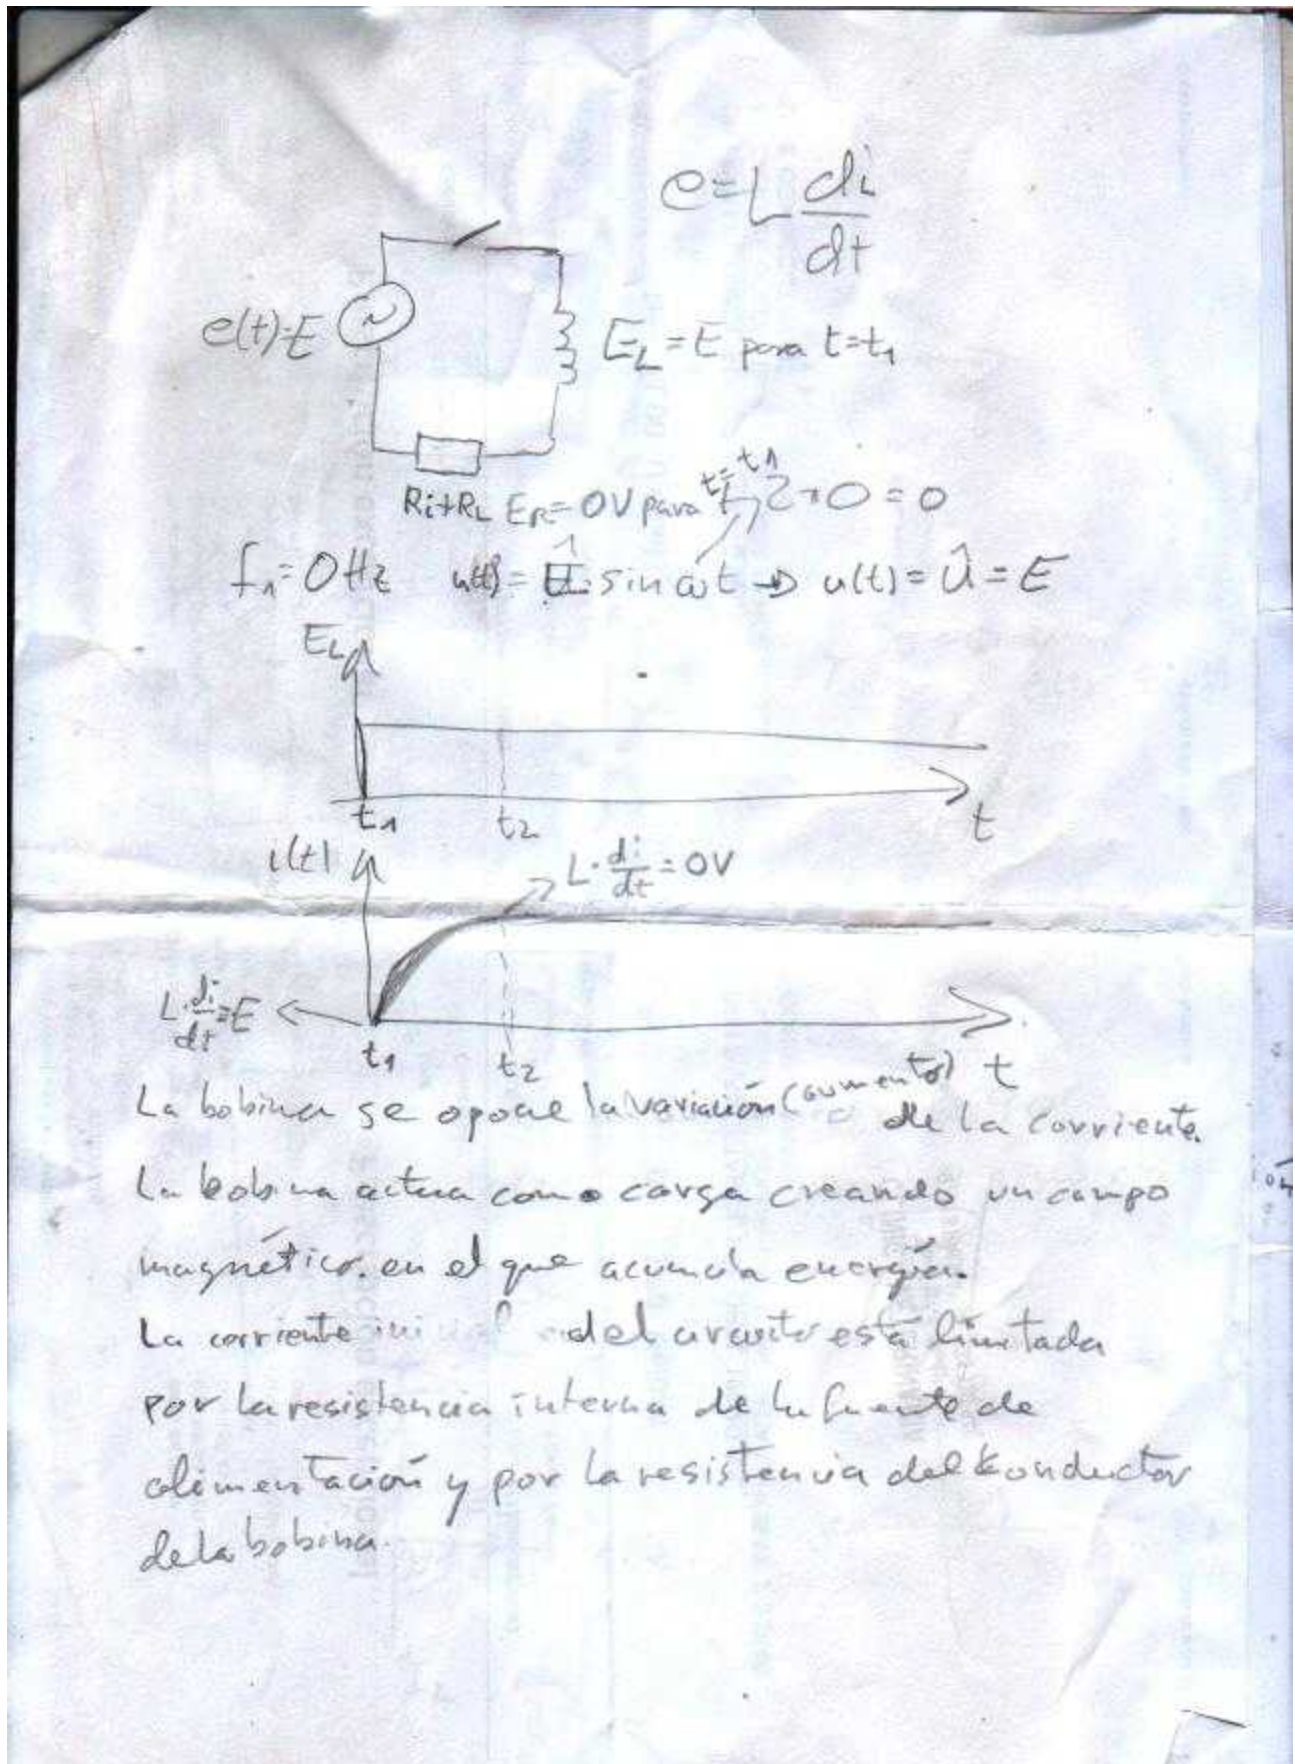 e=L di/dt
e(t)=E
E_L=E para t=t1
Ri+RL E_R=0V para t=t1
2π0=0
f1=0Hz u(t)= sin ωt → u(t)=Û=E
E_L
t1 t2 t
i(t)
L·di/dt=0V
L·di/dt=E
t1 t2 t
La bobina se opone la variación (aumento) de la corriente.
La bobina actua como carga creando un campo
magnético. en el que acumula energía.
La corriente inicial del circuito está limitada
por la resistencia interna de la fuente de
alimentación y por la resistencia del konductor
de la bobina.